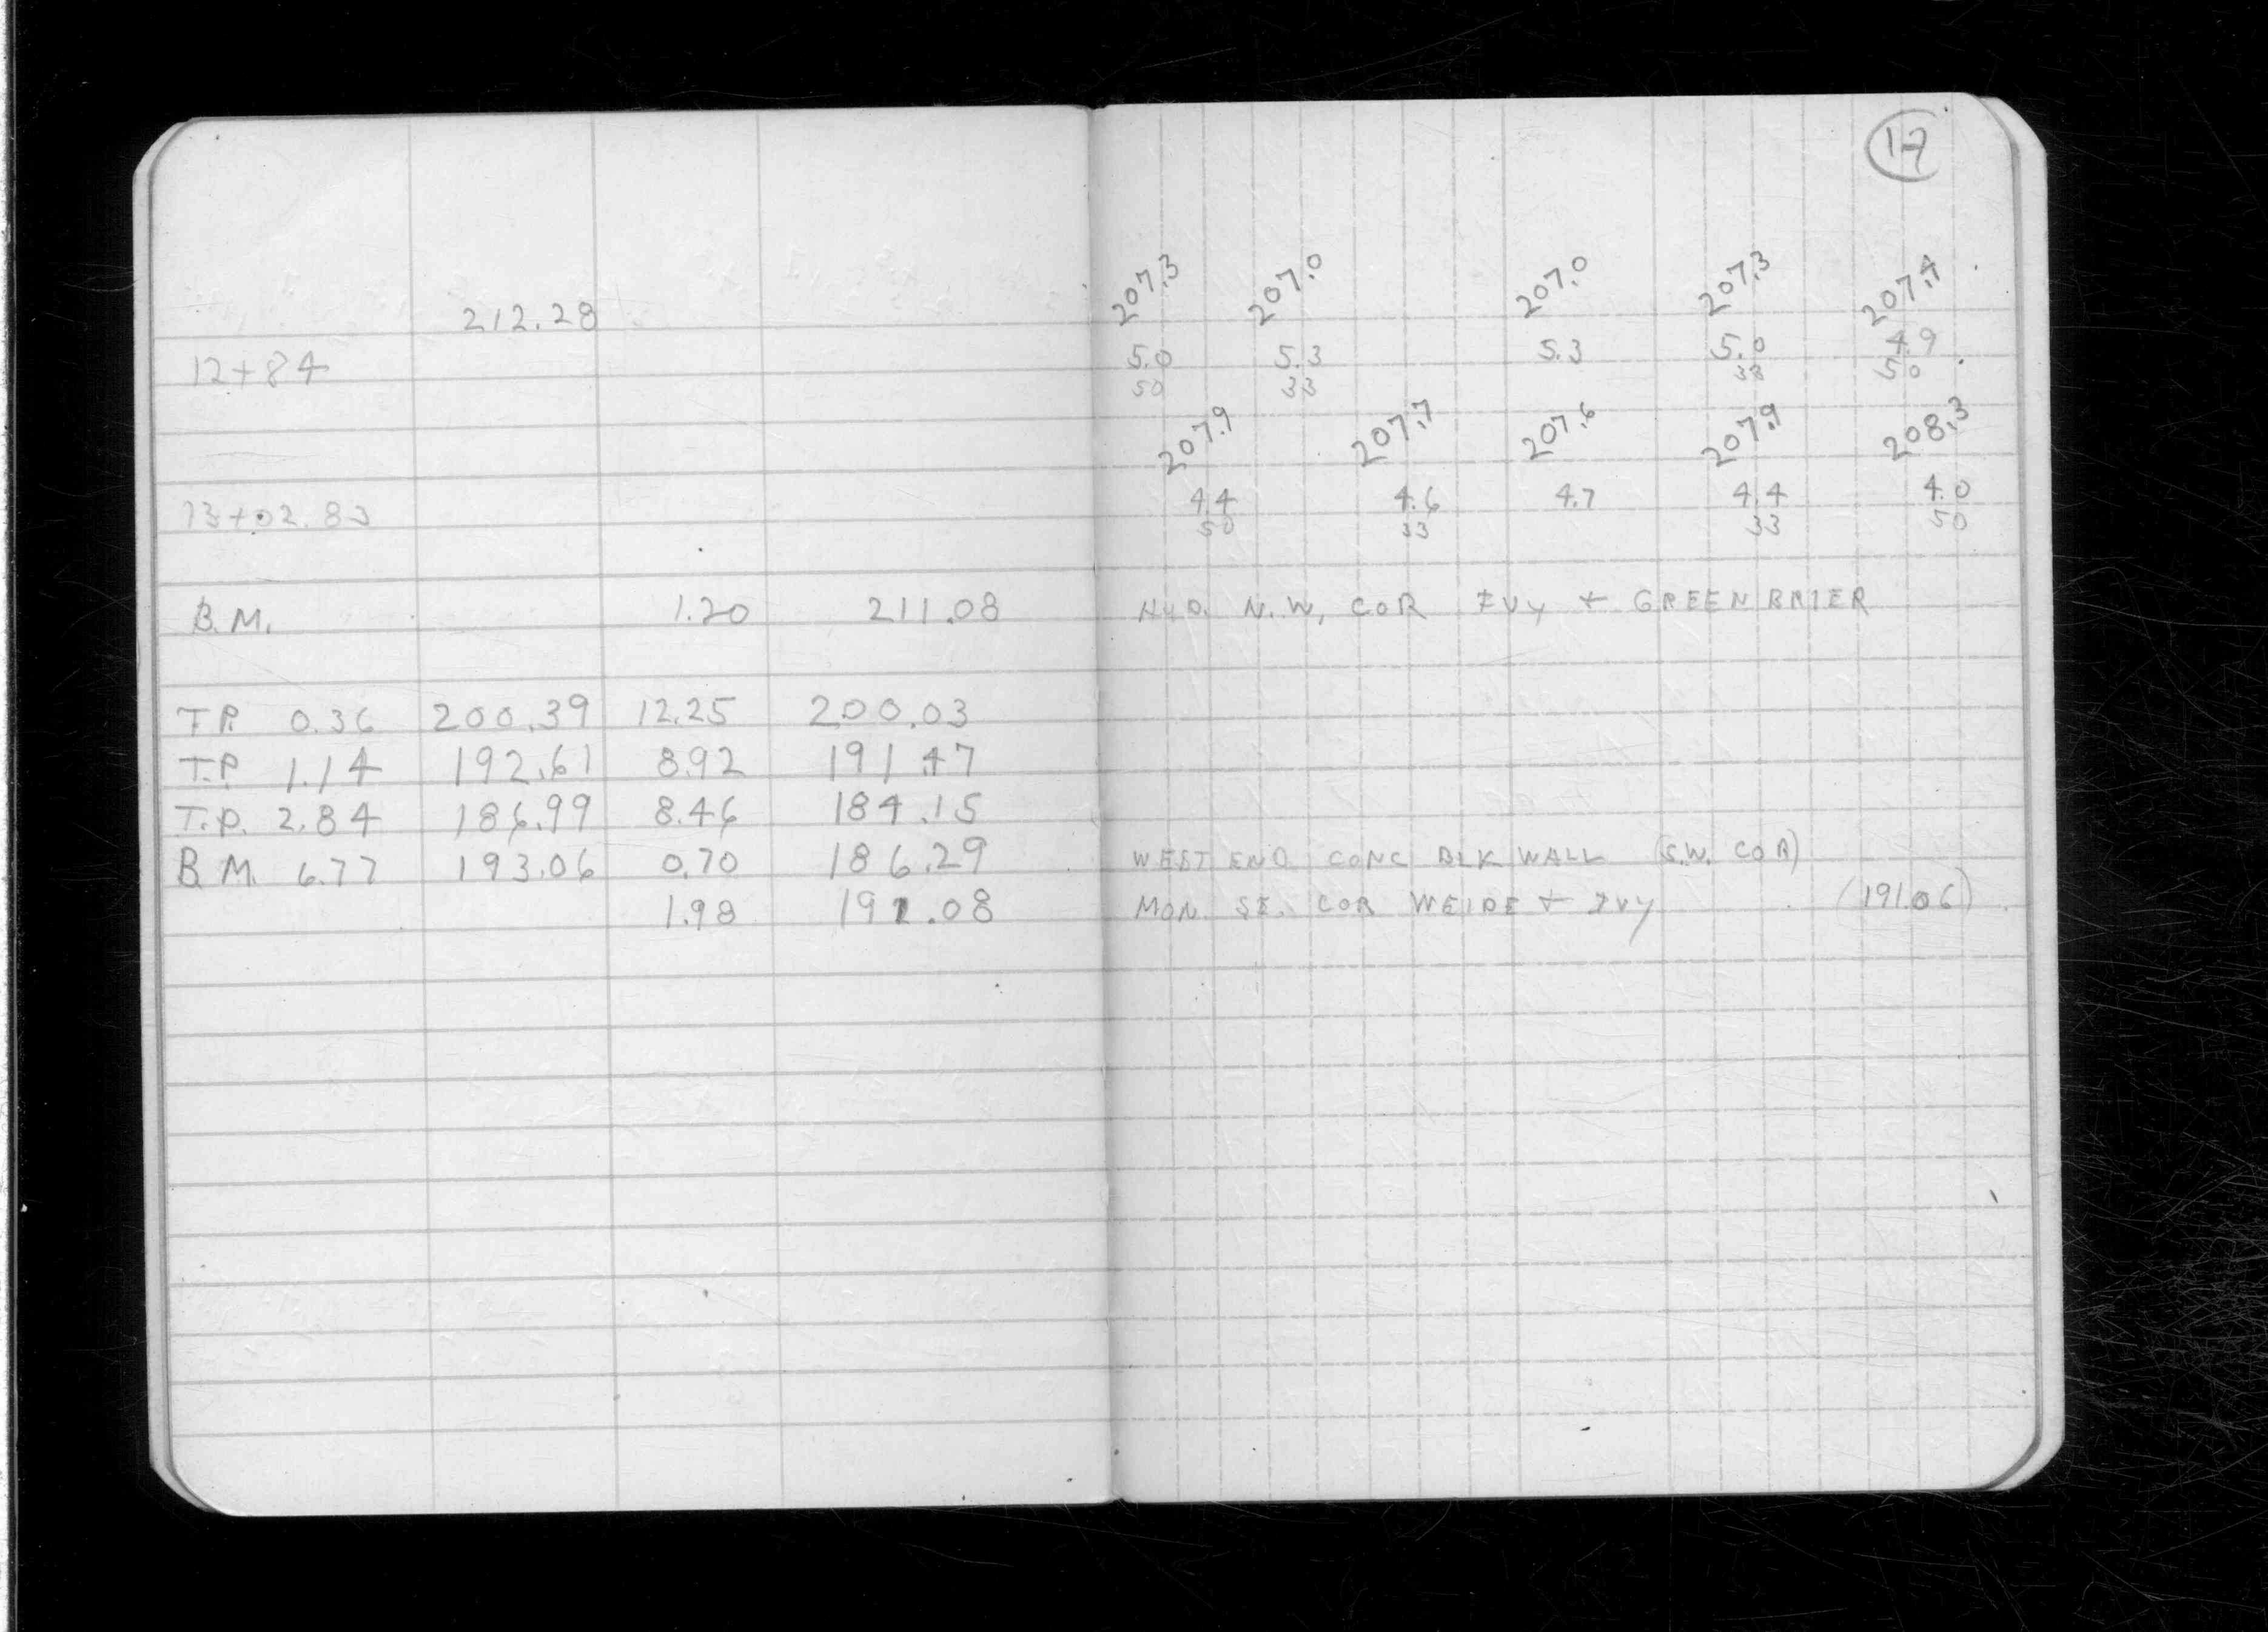 17
207.3 207.0 207.0 207.3 207.4
212.28
5.0 5.3 5.3 5.0 4.9
12+84
50 33 33 50
207.9 207.7 207.6 207.9 208.3
4.4 4.6 4.7 4.4 4.0
13+02.83
50 33 33 50
B.M. 1.20 211.08 HYD. N.W. COR IVY + GREENBRIER
T.P. 0.36 200.39 12.25 200.03
T.P. 1.14 192.61 8.92 191.47
T.P. 2.84 186.99 8.46 184.15
B.M. 6.77 193.06 0.70 186.29 WEST END CONC BLK WALL (S.W. COR)
1.98 191.08 MON. SE. COR WEIDE + IVY (191.06)